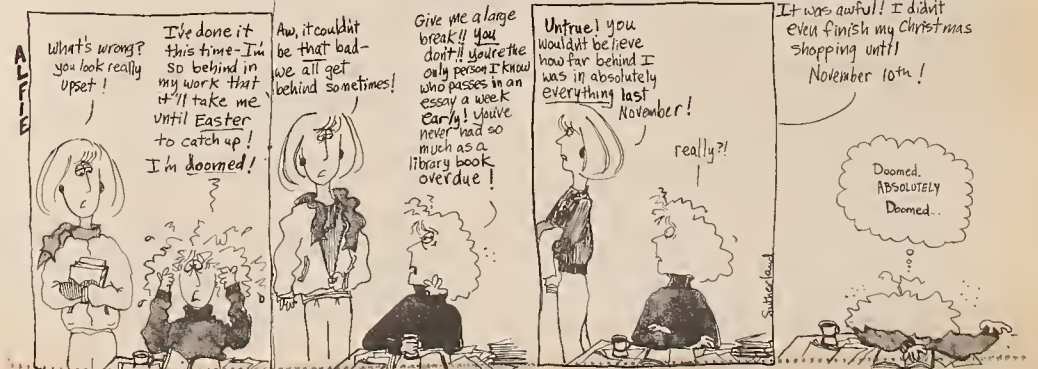 ALFIE
What's wrong?
you look really
upset!
I've done it
this time-I'm
so behind in
my work that
it'll take me
until Easter
to catch up!
I'm doomed!
Aw, it couldn't
be that bad-
we all get
behind sometimes!
Give me a large
break!! you
don't!! you're the
only person I know
who passes in an
essay a week
early! you've
never had so
much as a
library book
overdue!
Untrue! you
wouldn't believe
how far behind I
was in absolutely
everything last
November!
really?!
Sutherland
It was awful! I didn't
even finish my Christmas
shopping until
November 10th!
Doomed.
ABSOLUTELY
Doomed..